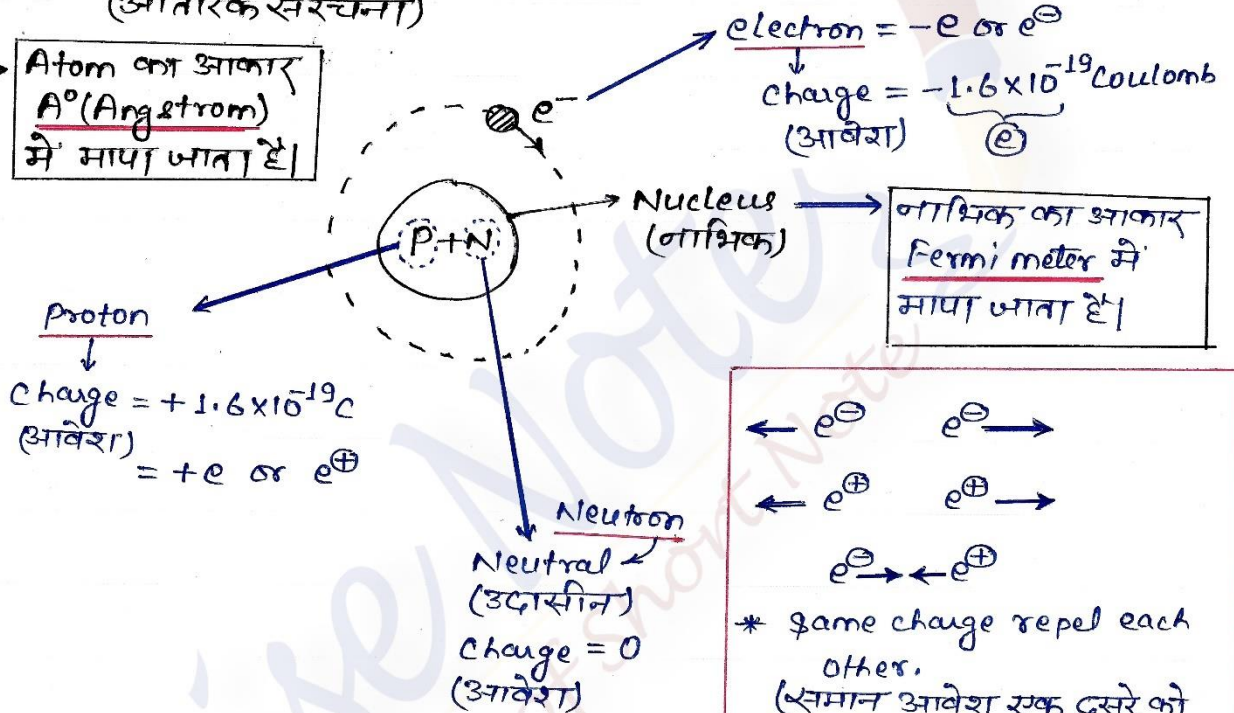 (आंतरिक संरचना)
Atom का आकार
A° (Angstrom)
में मापा जाता है।
e⁻
electron = -e or e⊖
charge = -1.6×10⁻¹⁹ Coulomb
(आवेश)
e
P+N
Nucleus
(नाभिक)
नाभिक का आकार
Fermi meter में
मापा जाता है।
Proton
charge = +1.6×10⁻¹⁹C
(आवेश)
= +e or e⊕
Neutron
Neutral
(उदासीन)
charge = 0
(आवेश)
← e⊖ e⊖ →
← e⊕ e⊕ →
e⊖ → ← e⊕
* Same charge repel each
other.
(समान आवेश एक दूसरे को
Short Note